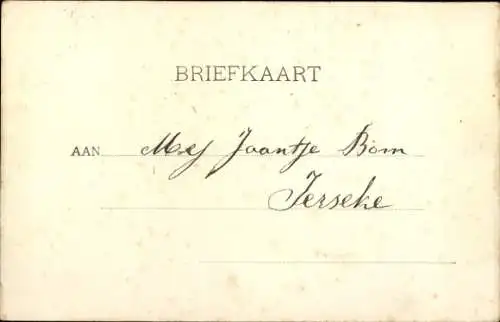 BRIEFKAART
AAN Mej Jaantje Bom
Ierseke